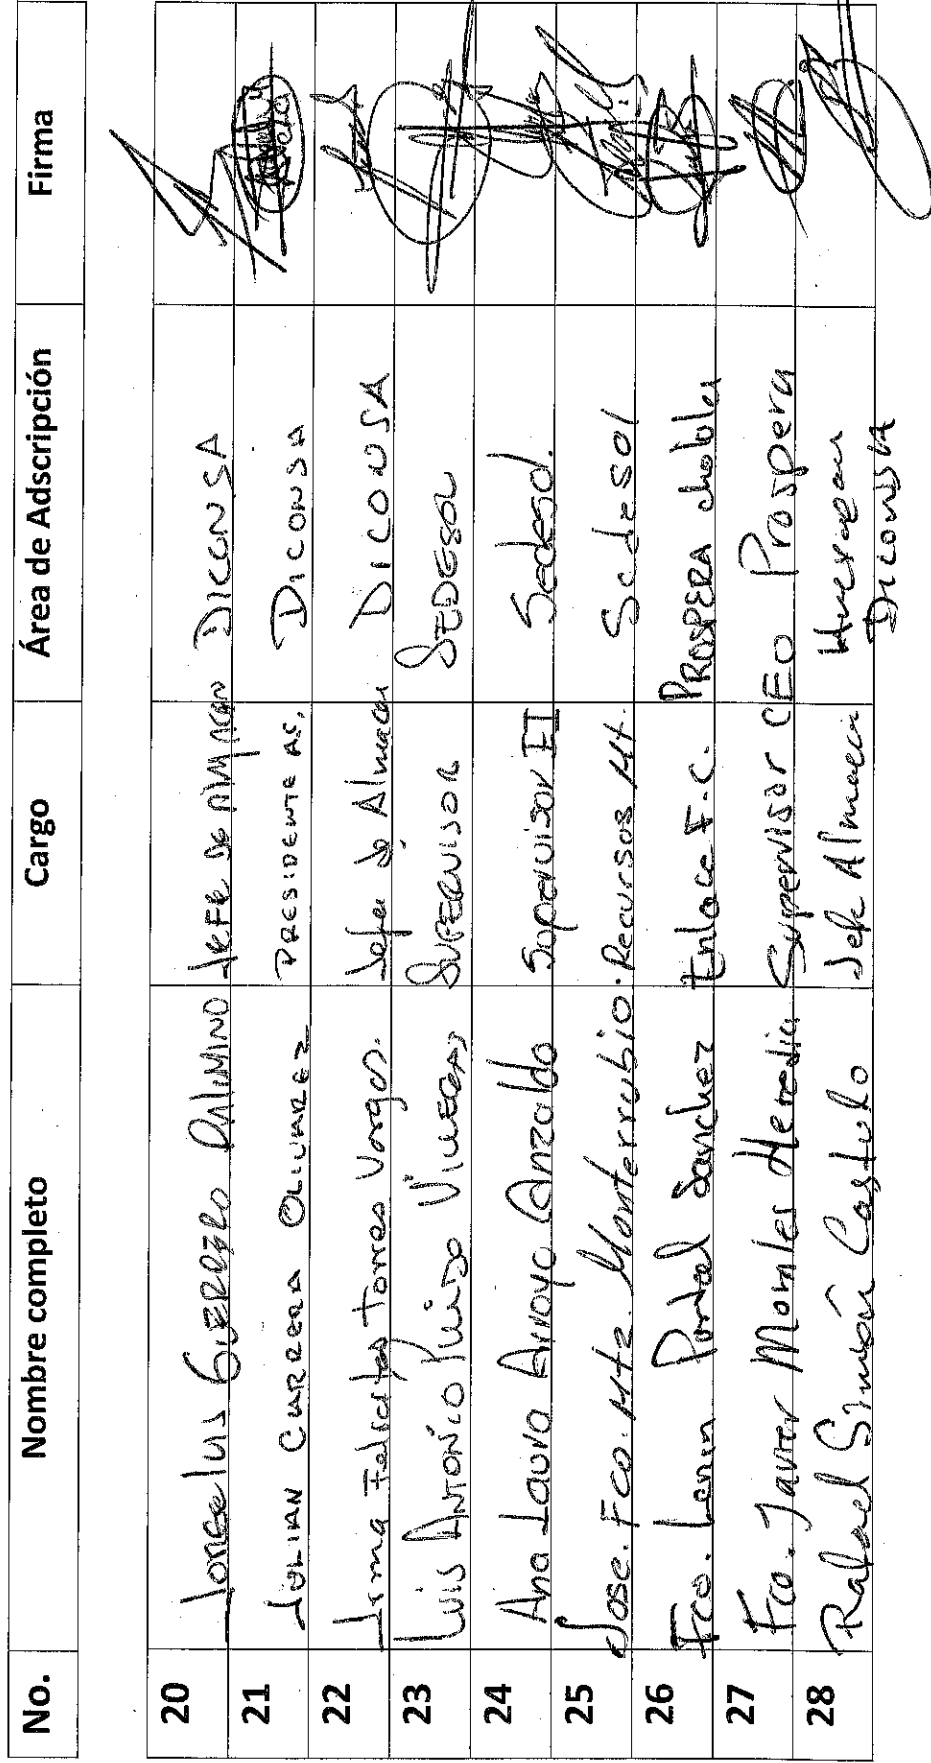 No. Nombre completo Cargo Área de Adscripción Firma
20 Jorge Luis Guerrero Palomino Jefe de Almacen DICONSA
21 JULIAN CARRERA OLIVAREZ PRESIDENTE AC. DICONSA
22 Irma Felicitas Torres Vargas. Jefa de Almacen DICONSA
23 Luis Antonio Pulido Villegas SUPERVISOR SEDESOL
24 Ana Laura Arroyo Anzaldo Supervisor II Sedesol.
25 Jose. Fco. Mtz. Monterrubio. Recursos Mt. Sedesol
26 Fco. Lenin Portal Sanchez Enlace F.C. PROSPERA cholula
27 Fco. Javier Morales Heredia Supervisor CEO Prospera
28 Rafael Simón Castulo Jefe Almacen
Diconsa